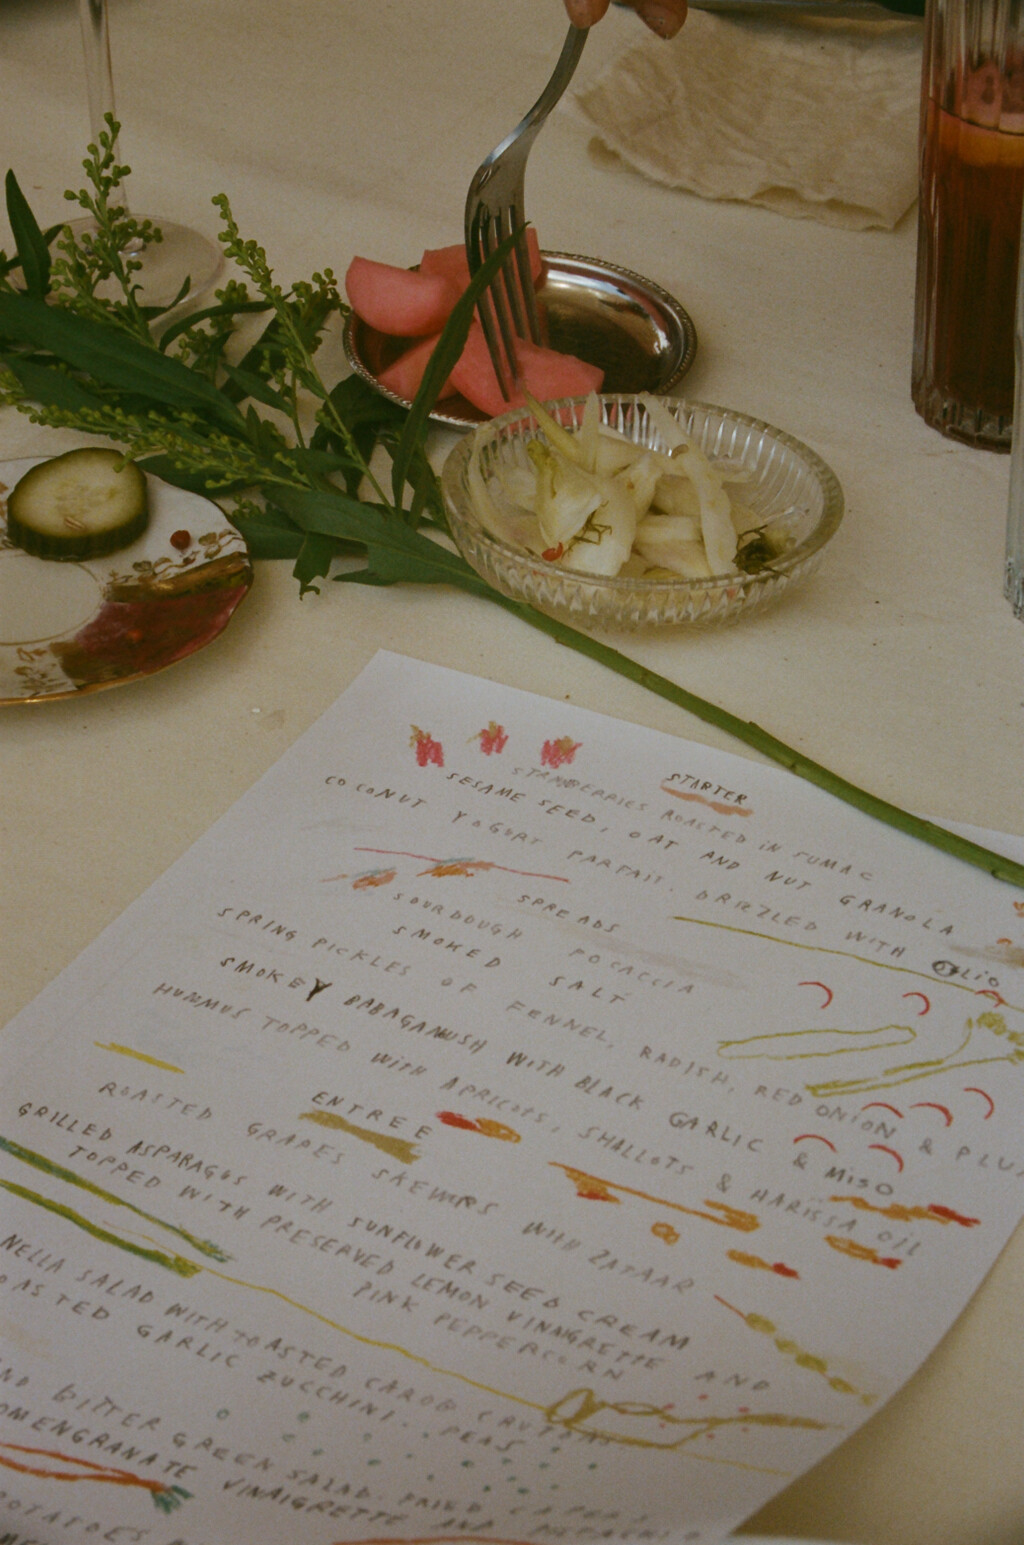 STARTER
STRAWBERRIES ROASTED IN SUMAC
SESAME SEED, OAT AND NUT GRANOLA
COCONUT YOGURT PARFAIT. DRIZZLED WITH OLIO
SPREADS
SOURDOUGH FOCACCIA
SMOKED SALT
SPRING PICKLES OF FENNEL, RADISH, RED ONION & PLU
SMOKEY BABAGANUSH WITH BLACK GARLIC & MISO
HUMMUS TOPPED WITH APRICOTS, SHALLOTS & HARISSA OIL
ENTREE
ROASTED GRAPES SKEWERS WITH ZATAAR
GRILLED ASPARAGUS WITH SUNFLOWER SEED CREAM
TOPPED WITH PRESERVED LEMON VINAIGRETTE AND
PINK PEPPERCORN
NELLA SALAD WITH TOASTED CAROB CRUTONS
OASTED GARLIC ZUCCHINI. PEAS
ND BITTER GREEN SALAD. FRIED CAPERS
OMENGRANATE VINAIGRETTE AND PISTACHIO
POTATOES